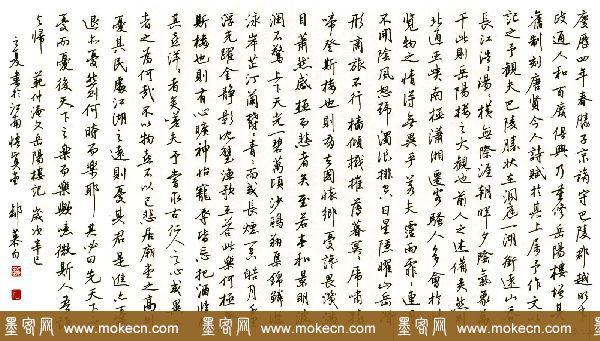 慶曆四年春滕子京谪守巴陵郡越明年
政通人和百废俱興乃重修岳陽樓增其
舊制刻唐賢今人詩賦於其上属予作文以
记之予觀夫巴陵勝状在洞庭一湖衔遠山吞
長江浩浩湯湯橫無際涯朝暉夕陰氣象萬
千此則岳陽樓之大觀也前人之述備矣然則
北通巫峡南極瀟湘遷客騷人多會於此
览物之情得無異乎若夫霪雨霏霏連月
不開陰風怒號濁浪排空日星隱耀山岳潛
形商旅不行檣傾楫摧薄暮冥冥虎嘯猿
啼登斯樓也則有去國懷鄉憂讒畏譏滿
目蕭然感極而悲者矣至若春和景明波
瀾不驚上下天光一碧萬頃沙鷗翔集錦鱗游
泳岸芷汀蘭郁郁青青而或長煙一空皓月千里
浮光躍金静影沉璧漁歌互答此樂何極登
斯樓也則有心曠神怡寵辱皆忘把酒临風
其喜洋洋者矣嗟夫予嘗求古仁人之心或異二
者之為何哉不以物喜不以己悲居廟堂之高則
憂其民處江湖之遠則憂其君是進亦憂
退亦憂然則何時而樂耶其必曰先天下之
憂而憂後天下之樂而樂歟噫微斯人吾誰
与歸 範仲淹文岳陽樓記 歲次辛巳
之夏書於江南
墨客网 墨客网 墨客网 墨客网
www.mokecn.com www.mokecn.com www.mokecn.com www.mokecn.com